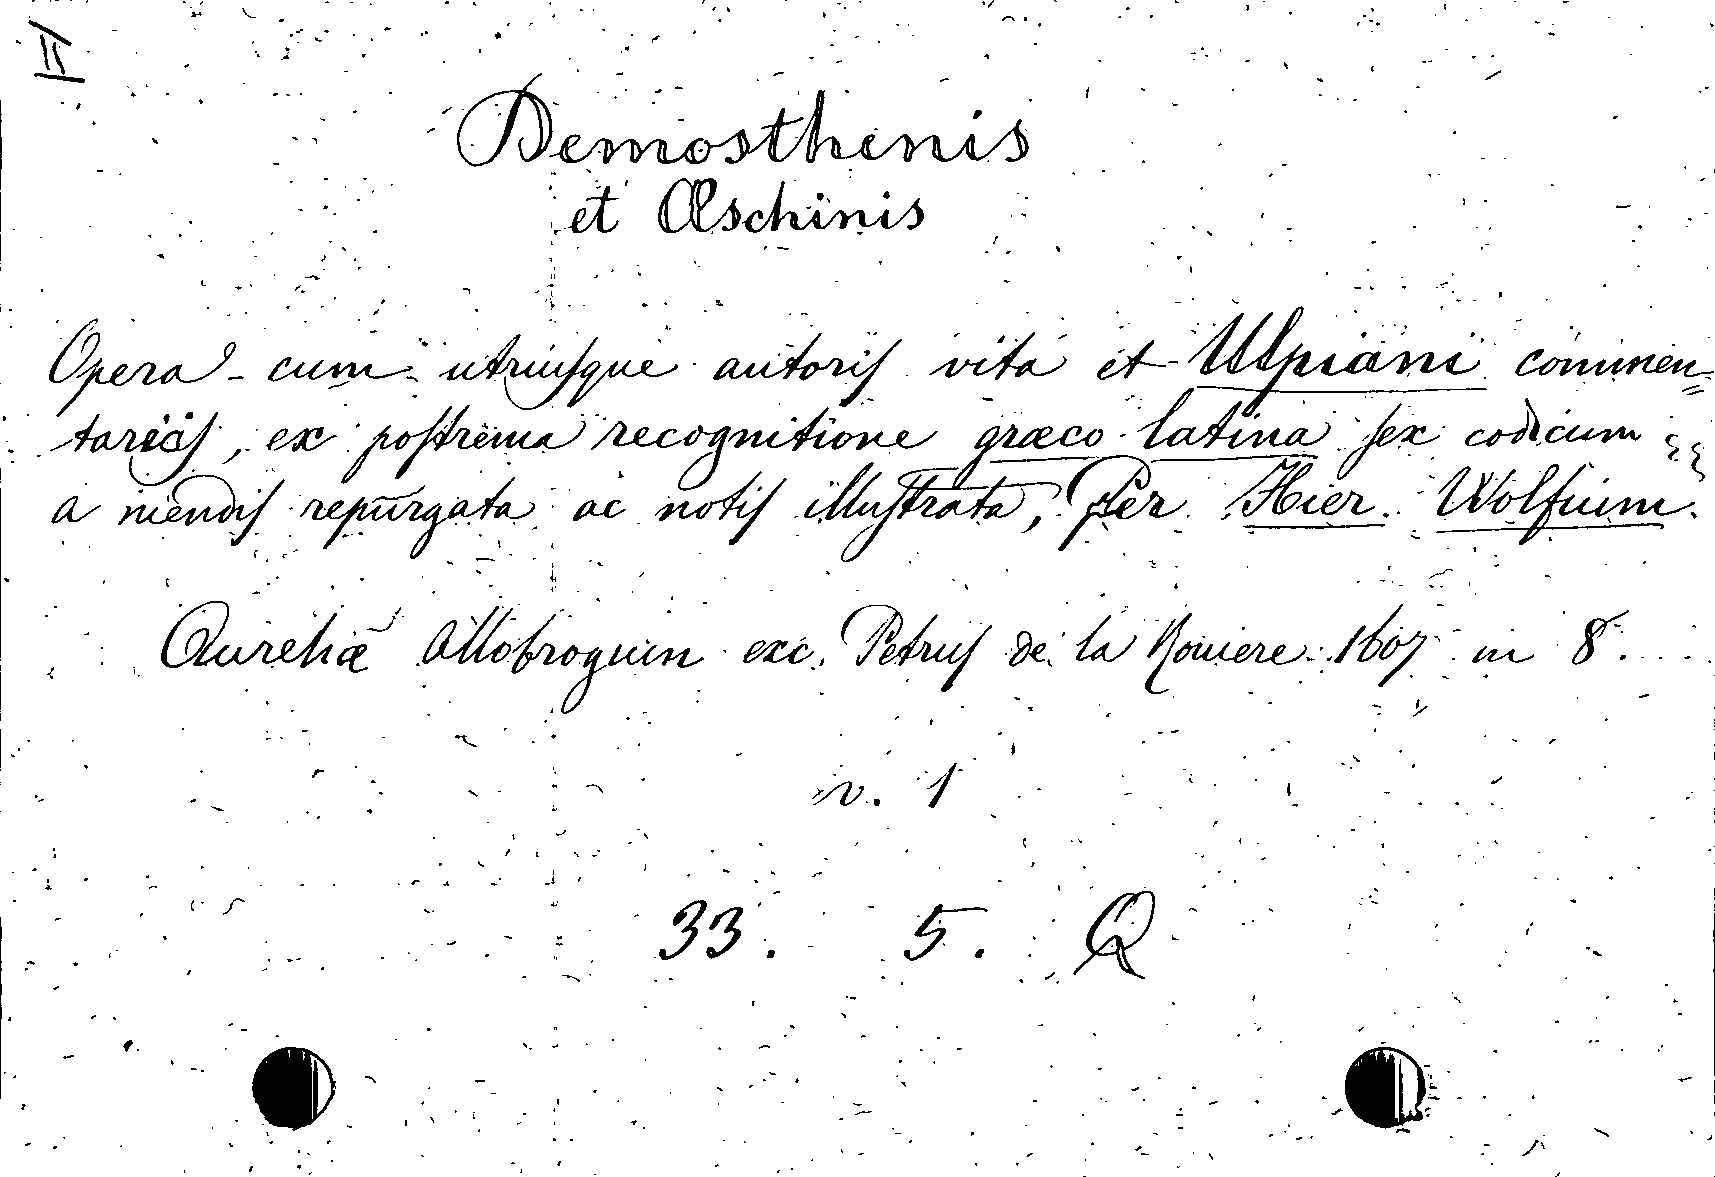 II
Demosthenis
et Œschinis
Opera cum utriusque autoris vita et Ulpiani commen=
tariis, ex postrema recognitione græco latina sex codicum
a mendis repurgata ac notis illustrata, per Hier. Wolfium.
Aureliæ Allobrogum exc. Petrus de la Roviere 1607 in 8.
v. 1
33. 5. Q